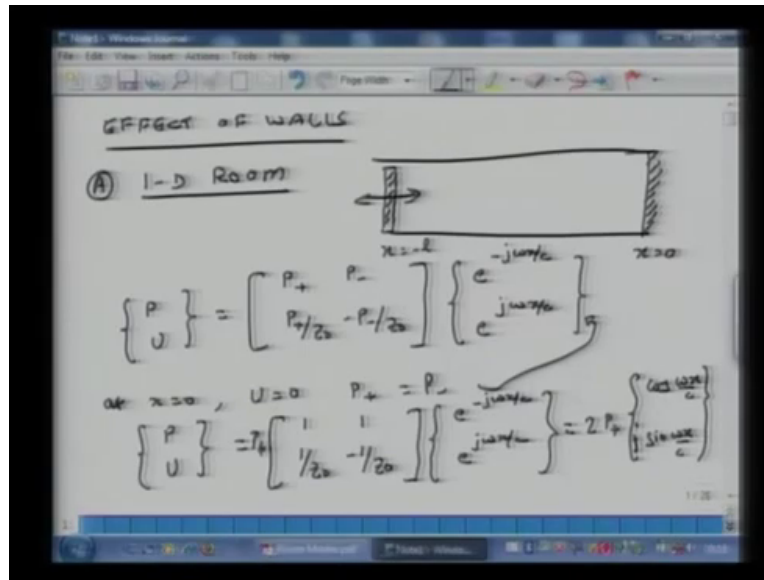 Note1 - Windows Journal
File Edit View Insert Actions Tools Help
Page Width
EFFECT OF WALLS
Ⓐ 1-D ROOM
x=-l x=0
{P U} = [P₊ P₋ P₊/Z₀ -P₋/Z₀] {e^{-jωx/c} e^{jωx/c}}
at x=0, U=0 P₊ = P₋
{P U} = P₊ [1 1 1/Z₀ -1/Z₀] {e^{-jωx/c} e^{jωx/c}} = 2P₊ {cos ωx/c j sin ωx/c}